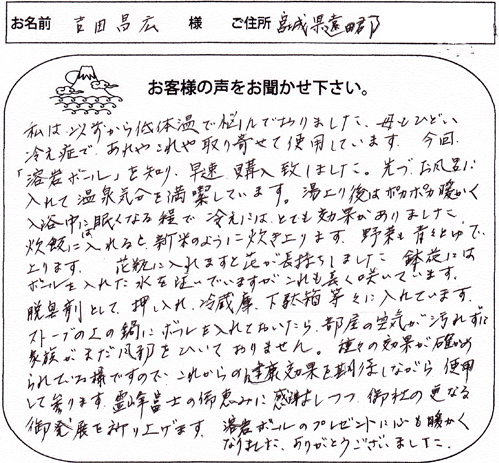 お名前 吉田昌広 様 ご住所 宮城県遠田郡
お客様の声をお聞かせ下さい。
私は以前から低体温で悩んでおりました。母もひどい
冷え症で、あれやこれや取り寄せて使用しています。今回、
「溶岩ボール」を知り、早速、購入致しました。先づ、お風呂に
入れて温泉気分を満喫しています。湯上り後はポカポカ暖かく
入浴中は眠くなる程で、冷えには、とても効果がありました。
炊飯に入れると、新米のように炊き上ります。野菜も青々とゆで
上ります。花瓶に入れますと花が長持ちしました。鉢花には
ボールを入れた水を注いでいますがこれも長く咲いています。
脱臭剤として、押し入れ、冷蔵庫、下駄箱等々に入れています。
ストーブの上の鍋にボールを入れておいたら、部屋の空気が汚れずに
家族がまだ風邪をひいておりません。種々の効果が確かめ
られている様ですので、これからの健康効果を期待しながら使用
して参ります。霊峰富士の御恵みに感謝しつつ、御社の更なる
御発展を祈り上げます。溶岩ボールのプレゼントに心も暖かく
なりました。ありがとうございました。